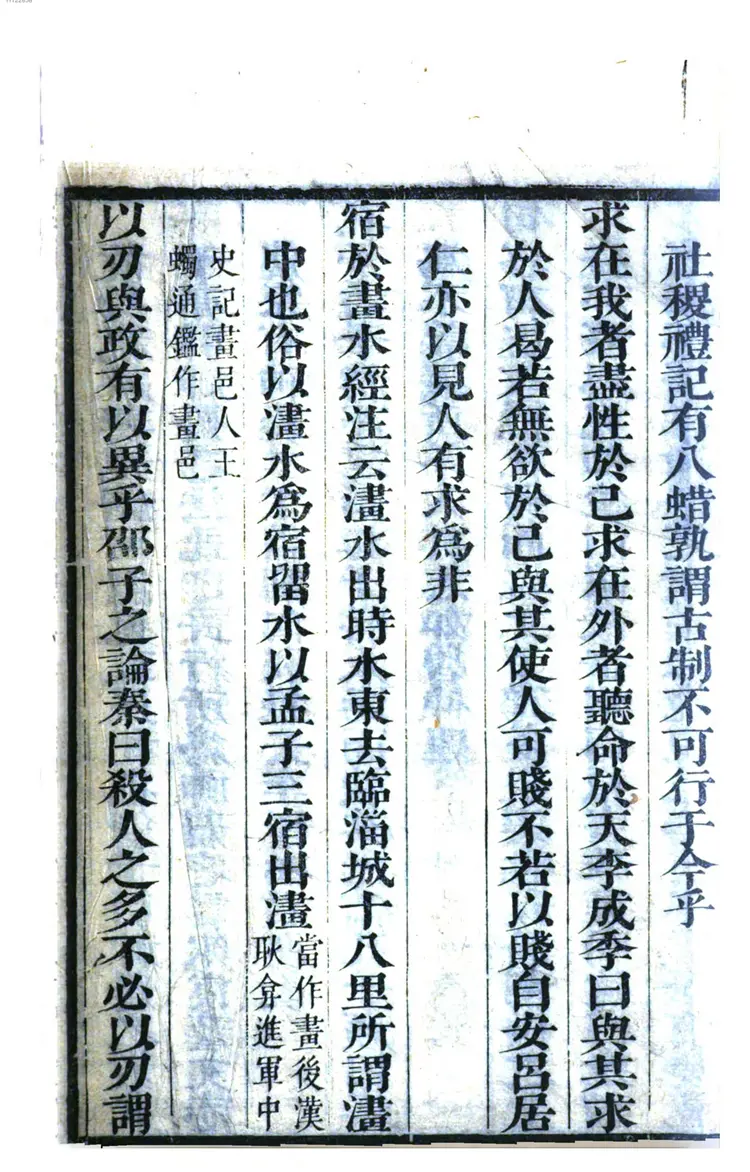 社稷禮記有八蜡孰謂古制不可行于今乎
求在我者盡性於己求在外者聽命於天李成季曰與其求
於人曷若無欲於己與其使人可賤不若以賤自安呂居
仁亦以見人有求爲非
宿於畫水經注云澅水出時水東去臨淄城十八里所謂澅
中也俗以澅水爲宿留水以孟子三宿出澅
當作畫後漢
耿弇進軍中
史記畫邑人王
蠋通鑑作畫邑
以刃與政有以異乎邵子之論秦曰殺人之多不必以刃謂